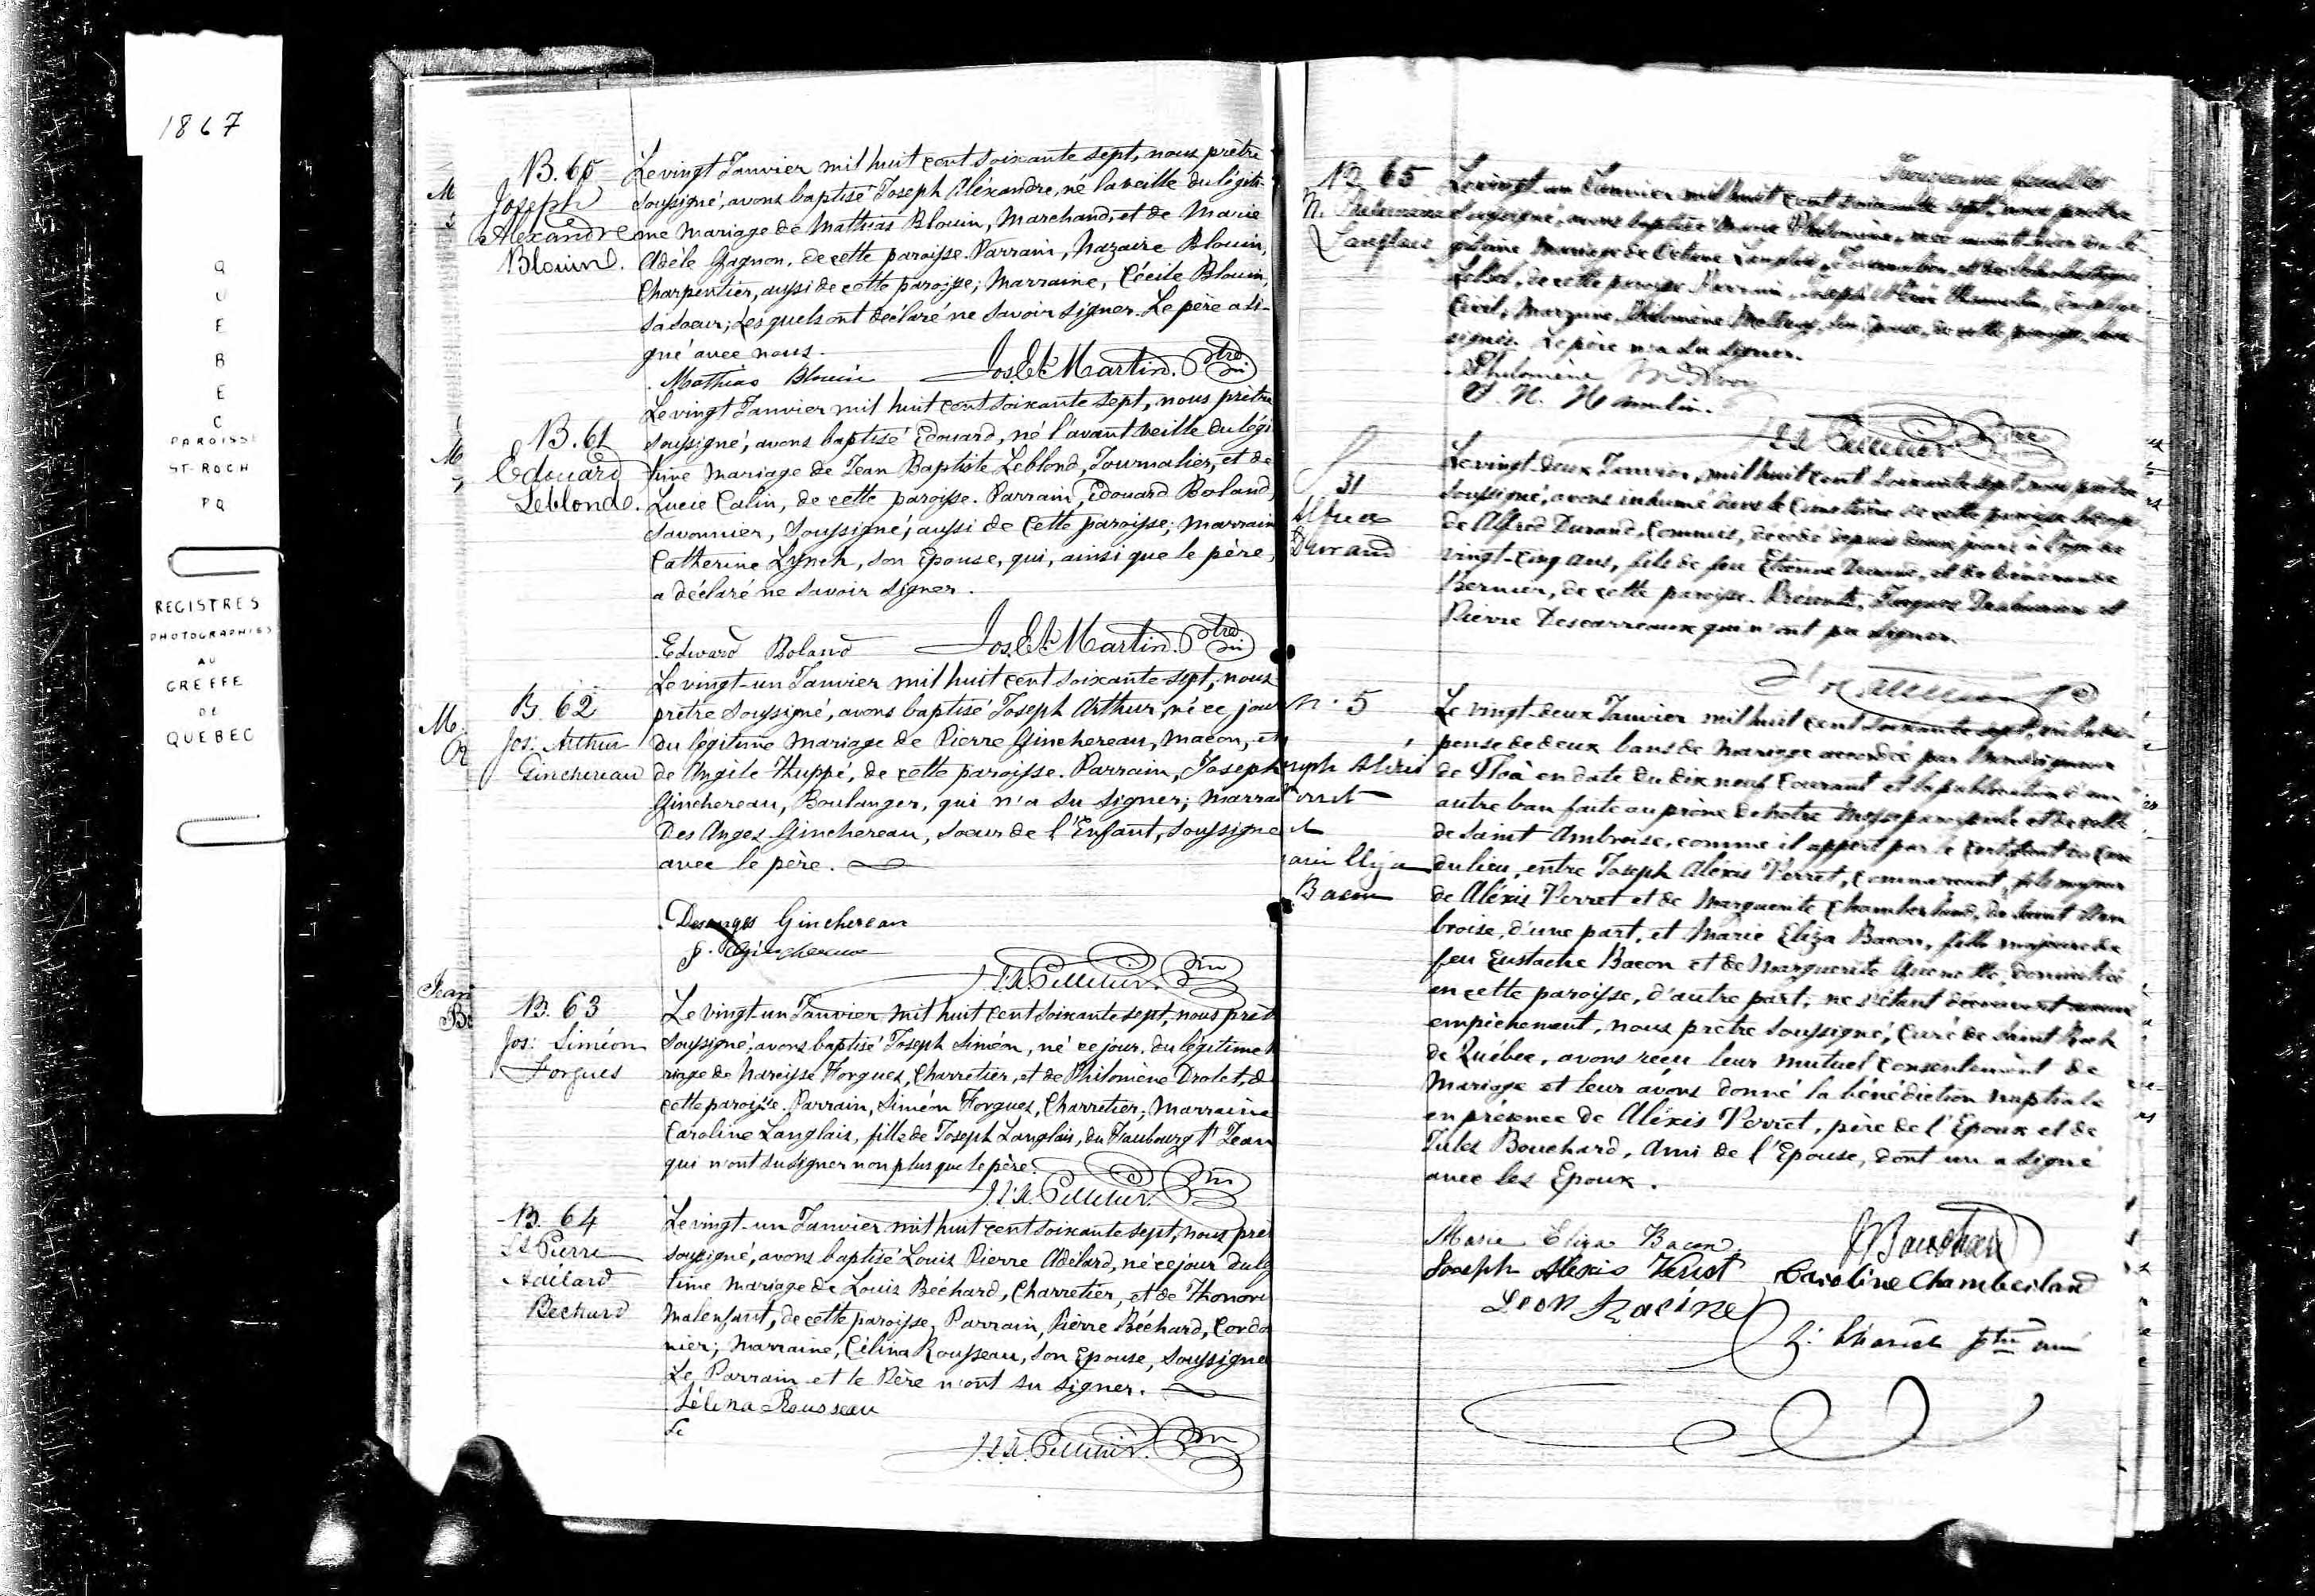 1867
QUEBEC
PAROISSE
ST-ROCH
PQ
REGISTRES
PHOTOGRAPHIES
AU
GREFFE
DE
QUEBEC
B. 60
Joseph
Alexandre
Blouin.
Le vingt Janvier mil huit cent soixante sept, nous prêtre
soussigné, avons baptisé Joseph Aléxandre, né la veille du légiti-
me Mariage de Mathias Blouin, Marchand, et de Marie
Adèle Gagnon, de cette paroisse. Parrain, Nazaire Blouin,
Charpentier, aussi de cette paroisse; Marraine, Cécile Blouin,
sa soeur; lesquels ont déclaré ne savoir signer. Le père a si-
gné avec nous.
Mathias Blouin Jos. Et. Martin. Ptre
B. 61
Edouard
Leblond.
Le vingt Janvier mil huit cent soixante sept, nous prêtre
soussigné, avons baptisé Edouard, né l'avant veille du légi
time Mariage de Jean Baptiste Leblond, Journalier, et de
Lucie Calin, de cette paroisse. Parrain, Edouard Boland,
Savonnier, Soussigné, aussi de cette paroisse; Marraine
Catherine Lynch, son Epouse, qui, ainsi que le père,
a déclaré ne savoir signer.
Edward Boland Jos. Et. Martin. Ptre
B. 62
Jos: Arthur
Ginchereau
Le vingt-un Janvier mil huit cent soixante-sept, nous
prêtre soussigné, avons baptisé Joseph Arthur, né ce jour
du légitime Mariage de Pierre Ginchereau, Maçon, et
de Angèle Huppé, de cette paroisse. Parrain, Joseph
Ginchereau, Boulanger, qui n'a su signer; Marrai
Des Anges Ginchereau, soeur de l'Enfant, soussigné
avec le père.
Desanges Ginchereau
J.A. Pelletier. Ptre
B. 63
Jos: Siméon
Forgues
Le vingt-un Janvier mil huit cent soixante sept, nous prêt
soussigné, avons baptisé Joseph Siméon, né ce jour, du légitime
riage de Narcisse Forgues, Charretier, et de Philomène Drolet, d
cette paroisse. Parrain, Siméon Forgues, Charretier; Marraine
Caroline Langlais, fille de Joseph Langlais, du Faubourg St Jean
qui n'ont su signer non plus que le père.
J.A. Pelletier. Ptre
B. 64
Ls Pierre
Adélard
Bechard
Le vingt-un Janvier mil huit cent soixante sept, nous pret
soussigné, avons baptisé Louis Pierre Adélard, né ce jour du lg
time Mariage de Louis Béchard, Charretier, et de Honori
Malenfant, de cette paroisse, Parrain, Pierre Béchard, Cordo
nier; Marraine, Célina Rousseau, son Epouse, soussigné
Le Parrain et le Père n'ont su signer.
Célina Rousseau
Le
J.A. Pelletier. Ptre
B. 65
M. Philomene
Langlais
Le vingt-un Janvier mil huit cent soixante sept, nous prêtre
soussigné, avons baptisé Marie Philomène, née
gitime Mariage de Octave Langlais, Journalier, et de
Lebel, de cette paroisse. Parrain, Joseph
Civil; Marraine, Philomène McAvoy, son Epouse, de cette paroisse, sous-
signés. Le père n'a su signer.
Philomène McAvoy
J. N. Hamelin.
J.A. Pelletier Ptre
S 31
Alfred
Durand
Le vingt-deux Janvier, mil huit cent soixante sept, nous prêtre
soussigné, avons inhumé dans le Cimetière de cette paroisse le corps
de Alfred Durand, Commis, décédé depuis deux jours à l'âge de
vingt-cinq ans, fils de feu Etienne Durand, et de
Bernier, de cette paroisse. Présents, Jacques et
Pierre Descarreaux qui n'ont pu signer.
M. 5
seph Aléxis
Verret
et
arie Eliza
Bacon
Le vingt-deux Janvier mil huit cent soixante sept, vu la dis-
pense de deux bans de mariage accordée par Monseigneur
de Tloa en date du dix neuf Courant et la publication d'un
autre ban faite au prône de notre Messe paroissiale et de celle
de Saint Ambroise, comme il appert par le Certificat du Curé
du lieu, entre Joseph Aléxis Verret, Commerçant, fils majeur
de Aléxis Verret et de Marguerite Chamberland, de Saint Am
broise, d'une part, et Marie Eliza Bacon, fille majeure de
feu Eustache Bacon et de Marguerite domiciliée
en cette paroisse, d'autre part; ne s'étant découvert aucun
empêchement, nous prêtre soussigné, Curé de Saint Roch
de Québec, avons reçu leur mutuel consentement de
Mariage et leur avons donné la bénédiction nuptiale
en présence de Aléxis Verret, père de l'Epoux et de
Jules Bouchard, Ami de l'Epouse, dont un a signé
avec les Epoux.
Marie Eliza Bacon J Bouchard
Joseph Alexis Verret Caroline Chamberland
Leon Racine
Z. Charest ptre curé